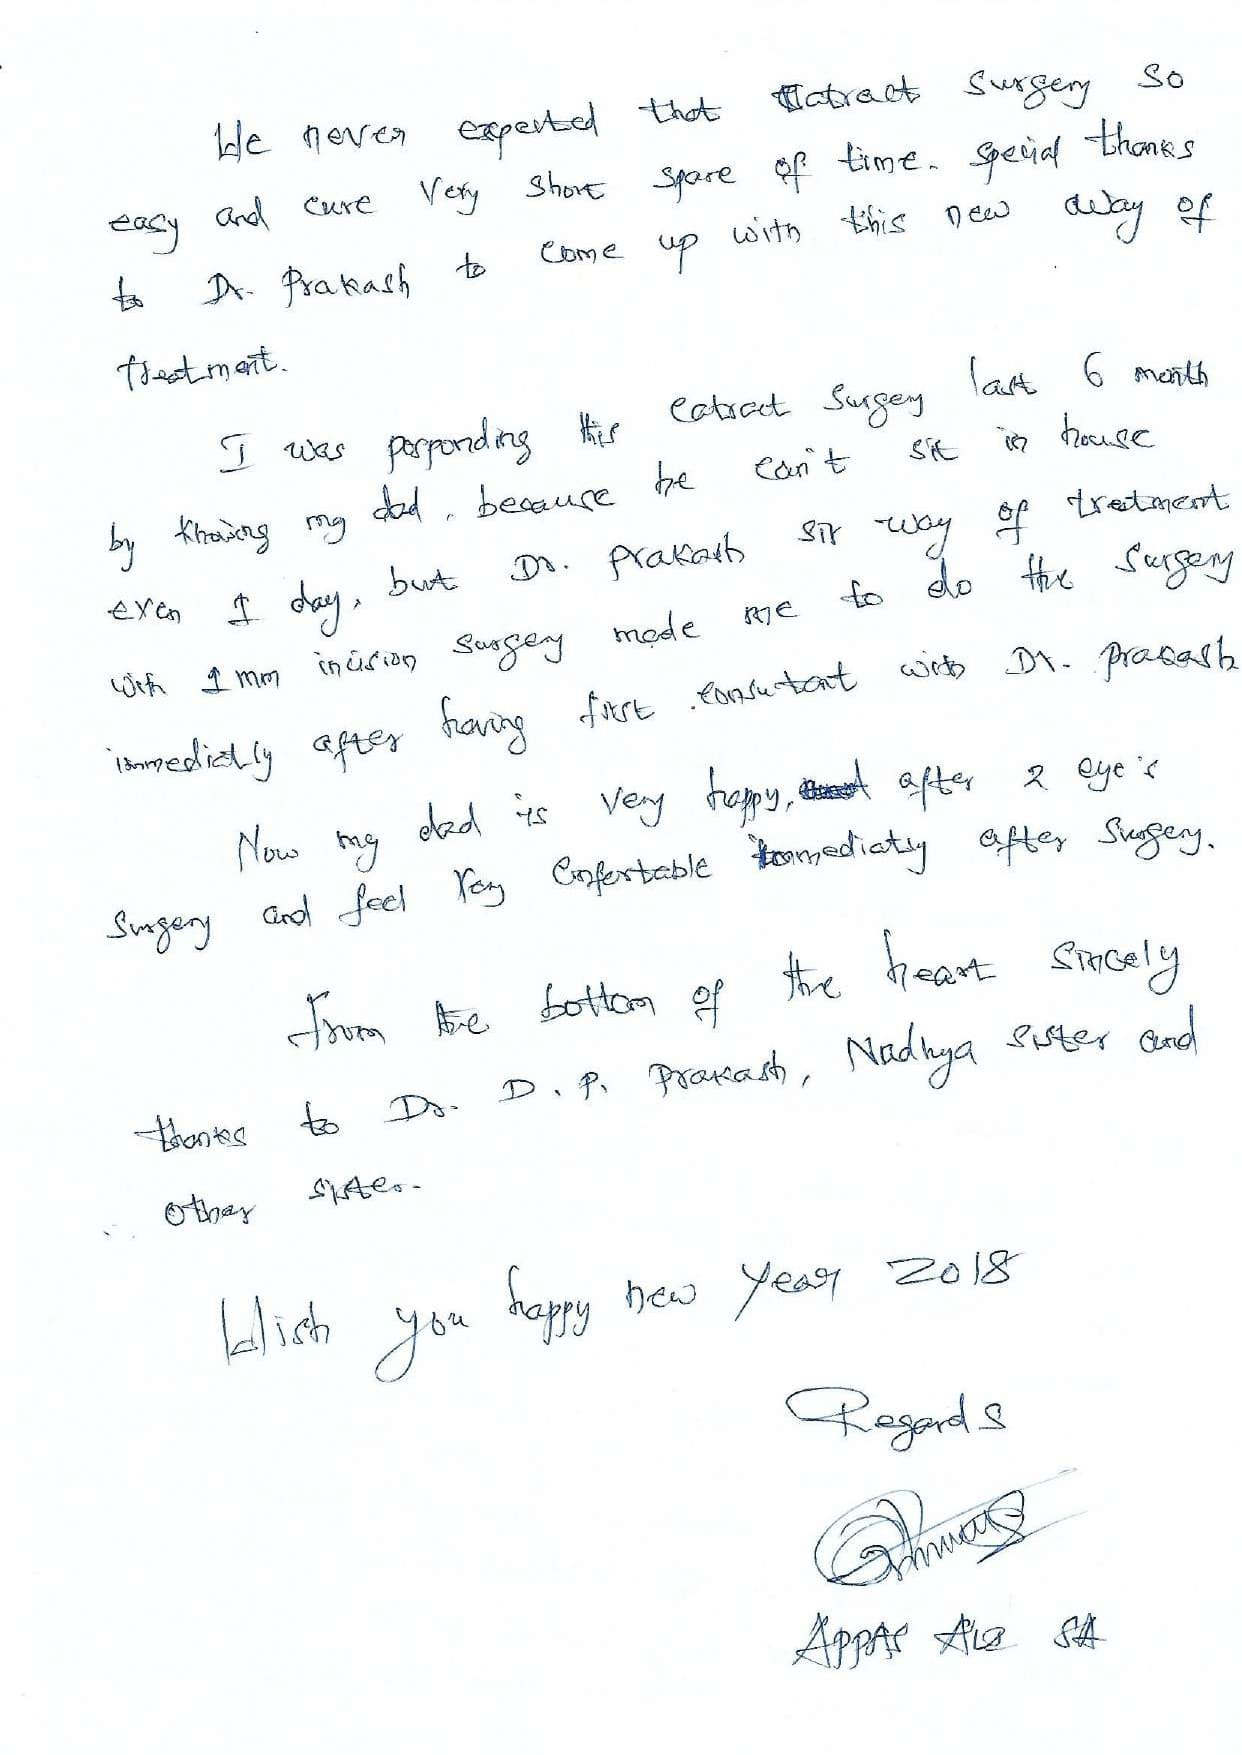 We never expected that Catract Surgery so
easy and cure very short spare of time. special thanks
to Dr. Prakash to come up with this new way of
treatment.
I was posponding this catract surgery last 6 month
by knowing my dad, because he can't sit in house
even 1 day, but Dr. Prakash sir way of treatment
with 1 mm incision surgery made me to do the surgery
immedictly after having first consutant with Dr. prakash
Now my dad is very happy, after 2 eye's
surgery and feel very Confortable immediatly after surgery.
From the bottom of the heart sincely
thanks to Dr. D. P. Prakash, Nadhya sister and
other sister.
Wish you happy new year 2018
Regards
APPAS SA